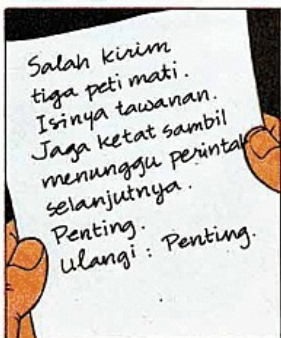 Salah kirim
tiga peti mati.
Isinya tawanan.
Jaga ketat sambil
menunggu perintah
selanjutnya.
Penting.
Ulangi: Penting.